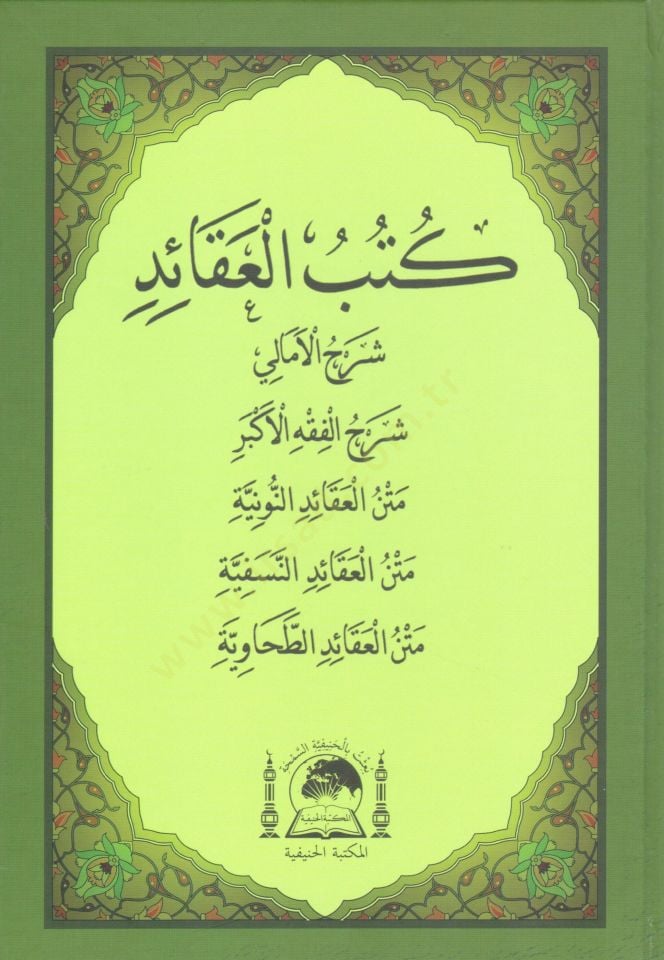 كُتُبُ الْعَقَائِدِ
شَرْحُ الْأَمَالِي
شَرْحُ الْفِقْهِ الْأَكْبَرِ
مَتْنُ الْعَقَائِدِ النُّونِيَّةِ
مَتْنُ الْعَقَائِدِ النَّسَفِيَّةِ
مَتْنُ الْعَقَائِدِ الطَّحَاوِيَّةِ
بُعِثْتُ بِالْحَنِيفِيَّةِ السَّمْحَةِ
المكتبة الحنيفية
المكتبة الحنيفية